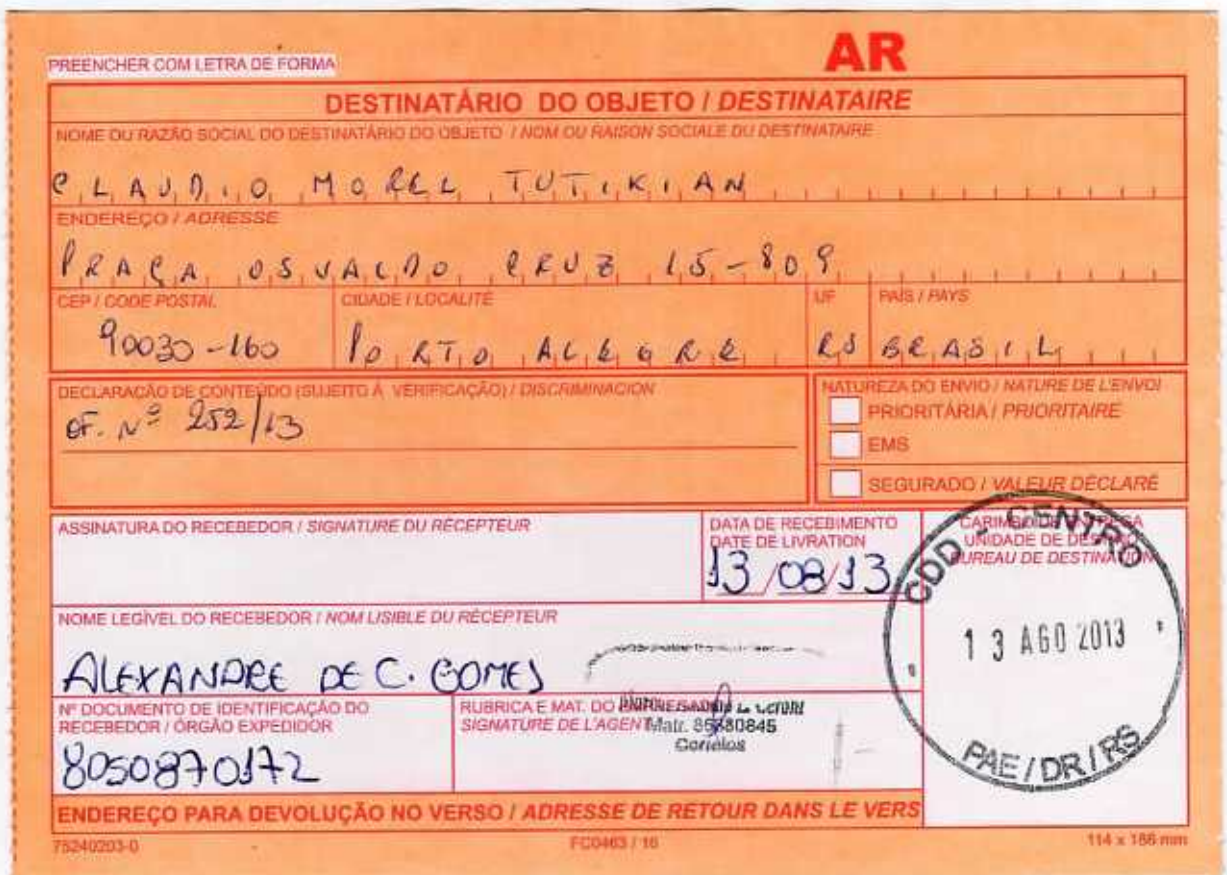 AR
PREENCHER COM LETRA DE FORMA
DESTINATÁRIO DO OBJETO / DESTINATAIRE
NOME OU RAZÃO SOCIAL DO DESTINATÁRIO DO OBJETO / NOM OU RAISON SOCIALE DU DESTINATAIRE
CLAUDIO MOREL TUTIKIAN
ENDEREÇO / ADRESSE
PRAÇA OSVALDO CRUZ 15-809
CEP / CODE POSTAL CIDADE / LOCALITÉ UF PAÍS / PAYS
90030-160 PORTO ALEGRE RS BRASIL
DECLARAÇÃO DE CONTEÚDO (SUJEITO À VERIFICAÇÃO) / DISCRIMINACION
OF. Nº 252/13
NATUREZA DO ENVIO / NATURE DE L'ENVOI
PRIORITÁRIA / PRIORITAIRE
EMS
SEGURADO / VALEUR DÉCLARÉ
ASSINATURA DO RECEBEDOR / SIGNATURE DU RÉCEPTEUR
DATA DE RECEBIMENTO
DATE DE LIVRATION
13/08/13
UNIDADE DE
BUREAU DE DESTINATION
CDD - CENTRO
13 AGO 2013
PAE / DR / RS
NOME LEGÍVEL DO RECEBEDOR / NOM LISIBLE DU RÉCEPTEUR
ALEXANDRE DE C. GOMES
Nº DOCUMENTO DE IDENTIFICAÇÃO DO
RECEBEDOR / ÓRGÃO EXPEDIDOR
8050870172
RUBRICA E MAT. DO
SIGNATURE DE L'AGENT
Matr.
Correios
ENDEREÇO PARA DEVOLUÇÃO NO VERSO / ADRESSE DE RETOUR DANS LE VERS
75240203-0 FC0463 / 16 114 x 186 mm